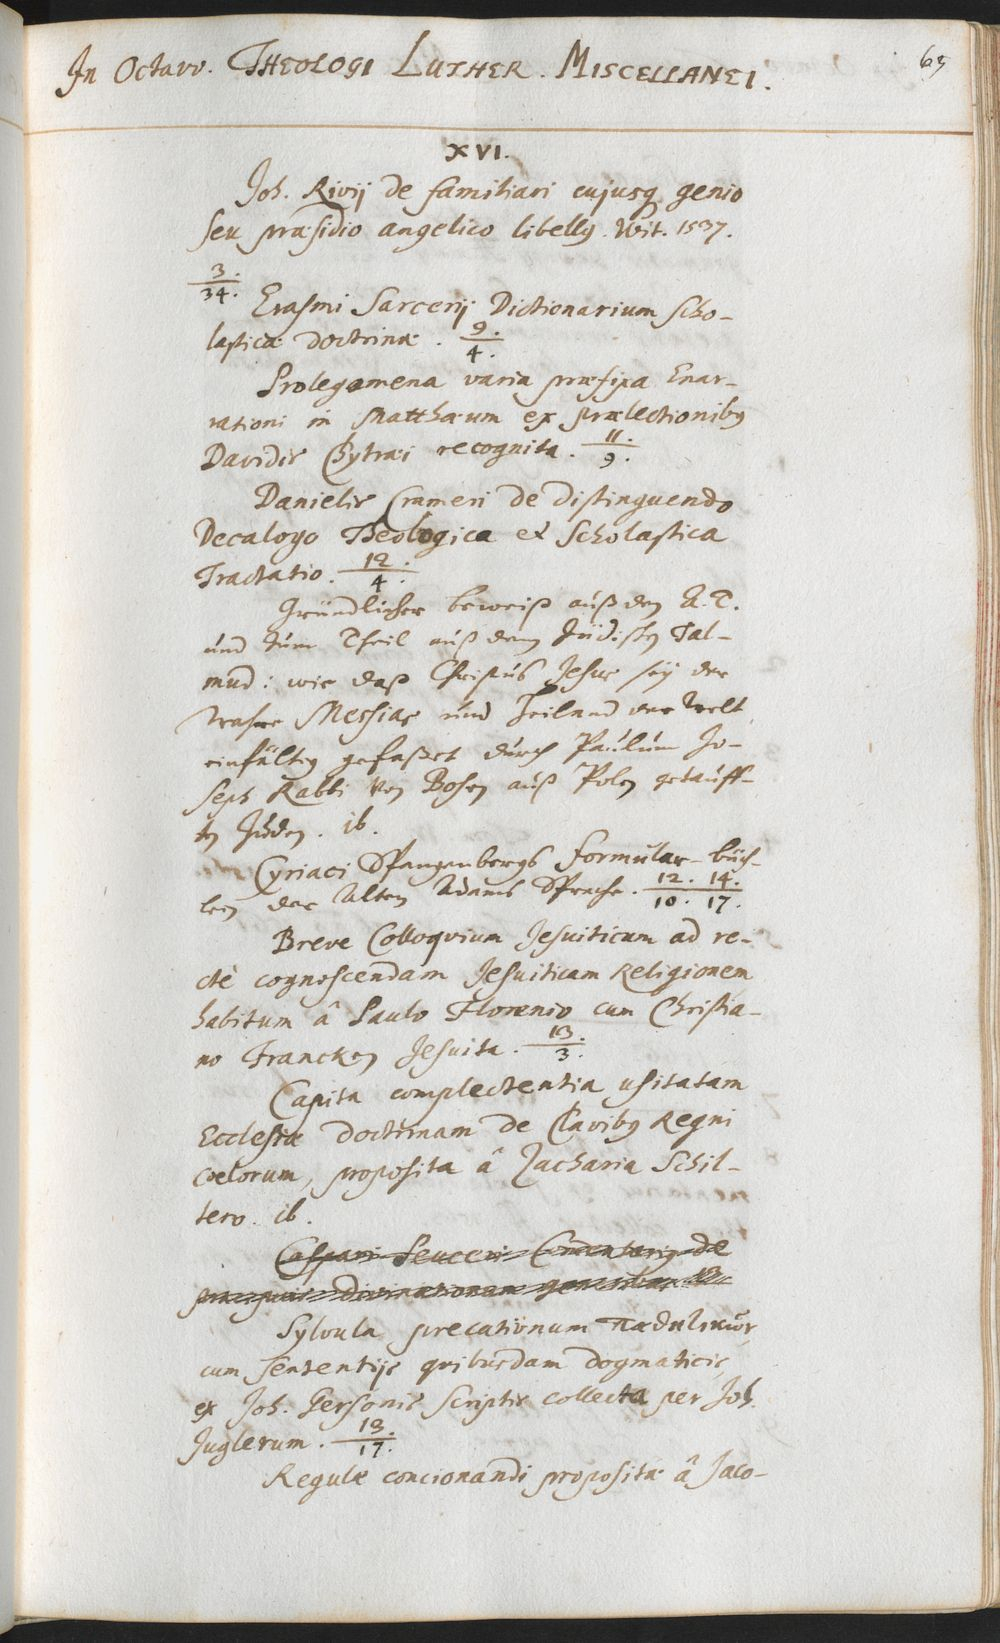 In Octavo. THEOLOGI LUTHER. MISCELLANEI.
65
XVI.
Joh. Rivij de familiari cujusq genio
seu præsidio angelico libellq. Wit. 1537.
3.
34.
Erasmi Sarcerij Dictionarium scho-
lasticæ doctrinæ. 9. / 4.
Prolegomena varia præfixa Enar-
rationi in Matthæum ex prælectionibq
Davidis Chytræi recognita. 11. / 9.
Danielis Crameri de distinguendo
Decalogo Theologica et Scholastica
Tractatio. 12. / 4.
Gründlicher beweiß auß dem A. T.
und zum Theil auß dem Jüdischen Tal-
mud: wie daß Christus Jesus sey der
wahre Messias und Heiland der Welt
einfältig gefasset durch Paulum Jo-
seph Rabbi von Posen auß Polen getauff-
ten Juden. ib.
Cyriaci Spangenbergs formular-büch-
lein der Alten Adams Sprache. 12. 14. / 10. 17.
Breve Colloqvium Jesuiticum ad re-
ctè cognoscendam Jesuiticam Religionem
habitum â Paulo Florenio cum Christia-
no Francken Jesuita. 13. / 3.
Capita complectentia usitatam
Ecclesiæ doctrinam de Clavibq Regni
coelorum, proposita â Zacharia Schil-
tero. ib.
Caspari Peuceri Commentariq de
præcipuis divinationum generibus
Sylvula precationum
cum sententijs qvibusdam dogmaticis,
ex Joh. Gersonis scriptis collecta per Joh.
Juglerum. 13. / 17.
Regulæ concionandi propositæ â Jaco-